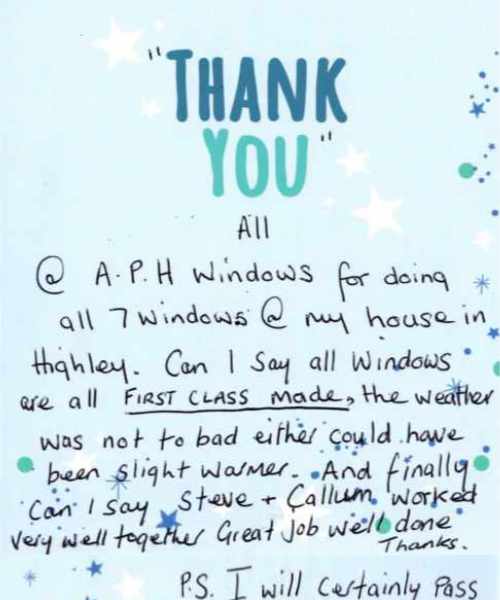 "THANK
YOU"
All
@ A.P.H Windows for doing
all 7 windows @ my house in
Highley. Can I Say all Windows
are all FIRST CLASS made, the weather
was not to bad either could have
been slight warmer. And finally
Can I say Steve + Callum, worked
very well together Great Job well done
Thanks.
P.S. I will Certainly Pass